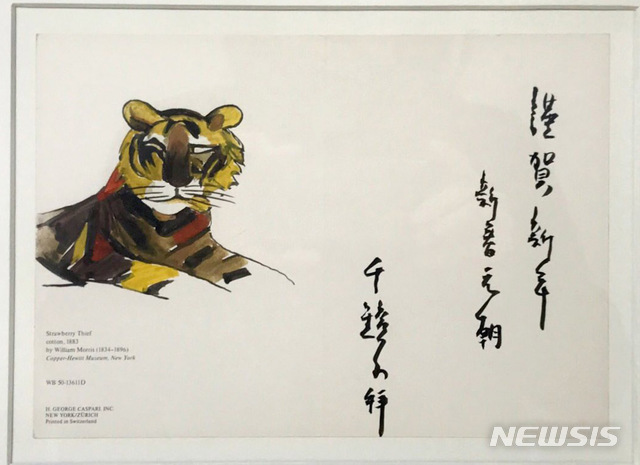 謹賀新年
新春元朝
千鏡子拜
Strawberry Thief
cotton, 1883
by William Morris (1834-1896)
Cooper-Hewitt Museum, New York
WB 50-13611D
H. GEORGE CASPARI INC
NEW YORK/ZÜRICH
Printed in Switzerland
NEWSIS